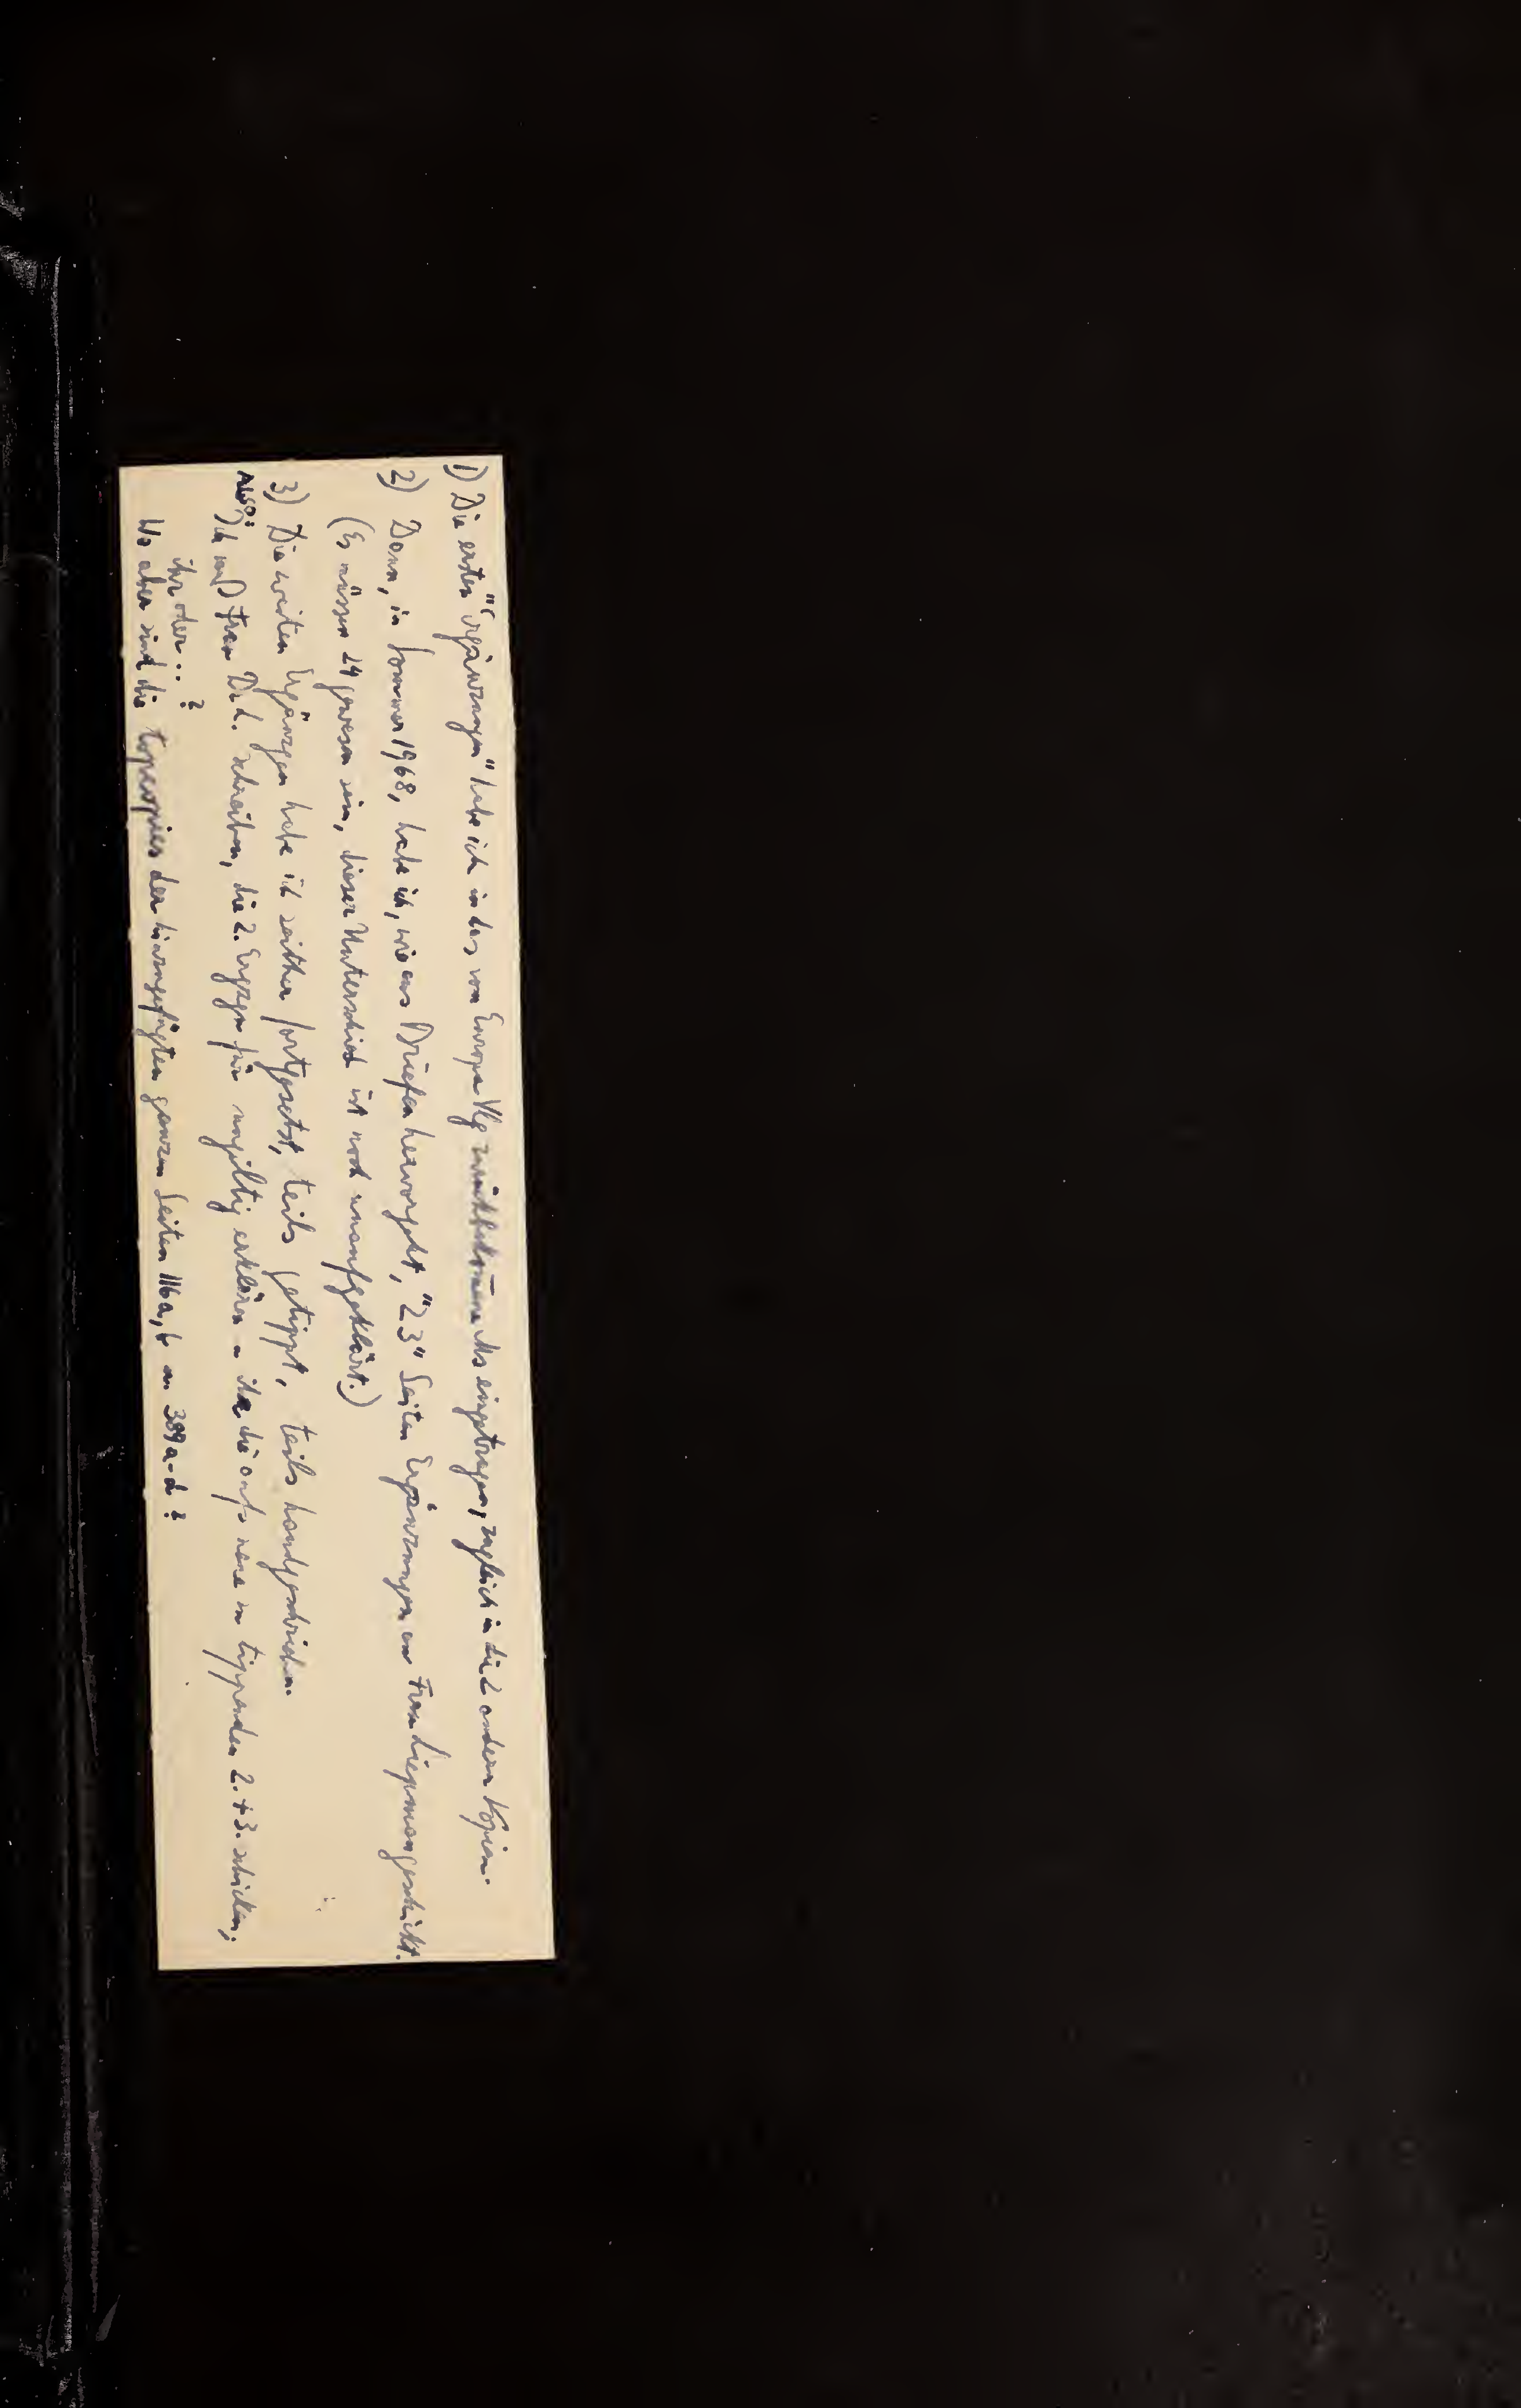 1) Die ersten "Ergänzungen" habe ich in das vom Europa Vlg zurückbekom̅ene Ms eingetragen, zugleich in die 2 andern Kopien.
2) Dann, in Sommer 1968, habe ich, wie aus Briefen hervorgeht, "23" Seiten Ergänzungen an Frau Liepman geschickt.
(Es müssen 24 gewesen sein, dieser Unterschied ist noch unaufgeklärt.)
3) Die weiten Ergänzgen habe ich seither fortgesetzt, teils getippt, teils handgeschrieben.
Also: Ich muß Frau Dr L. schreiben, die 2. Ergzgen für ungiltig erklären u ihr die aufs neue zu tippenden 2. + 3. schicken;
ihr oder ... ?
Wo aber sind die Typecopies der hinzugefügten ganzen Seiten 116a, b u 389a-d?